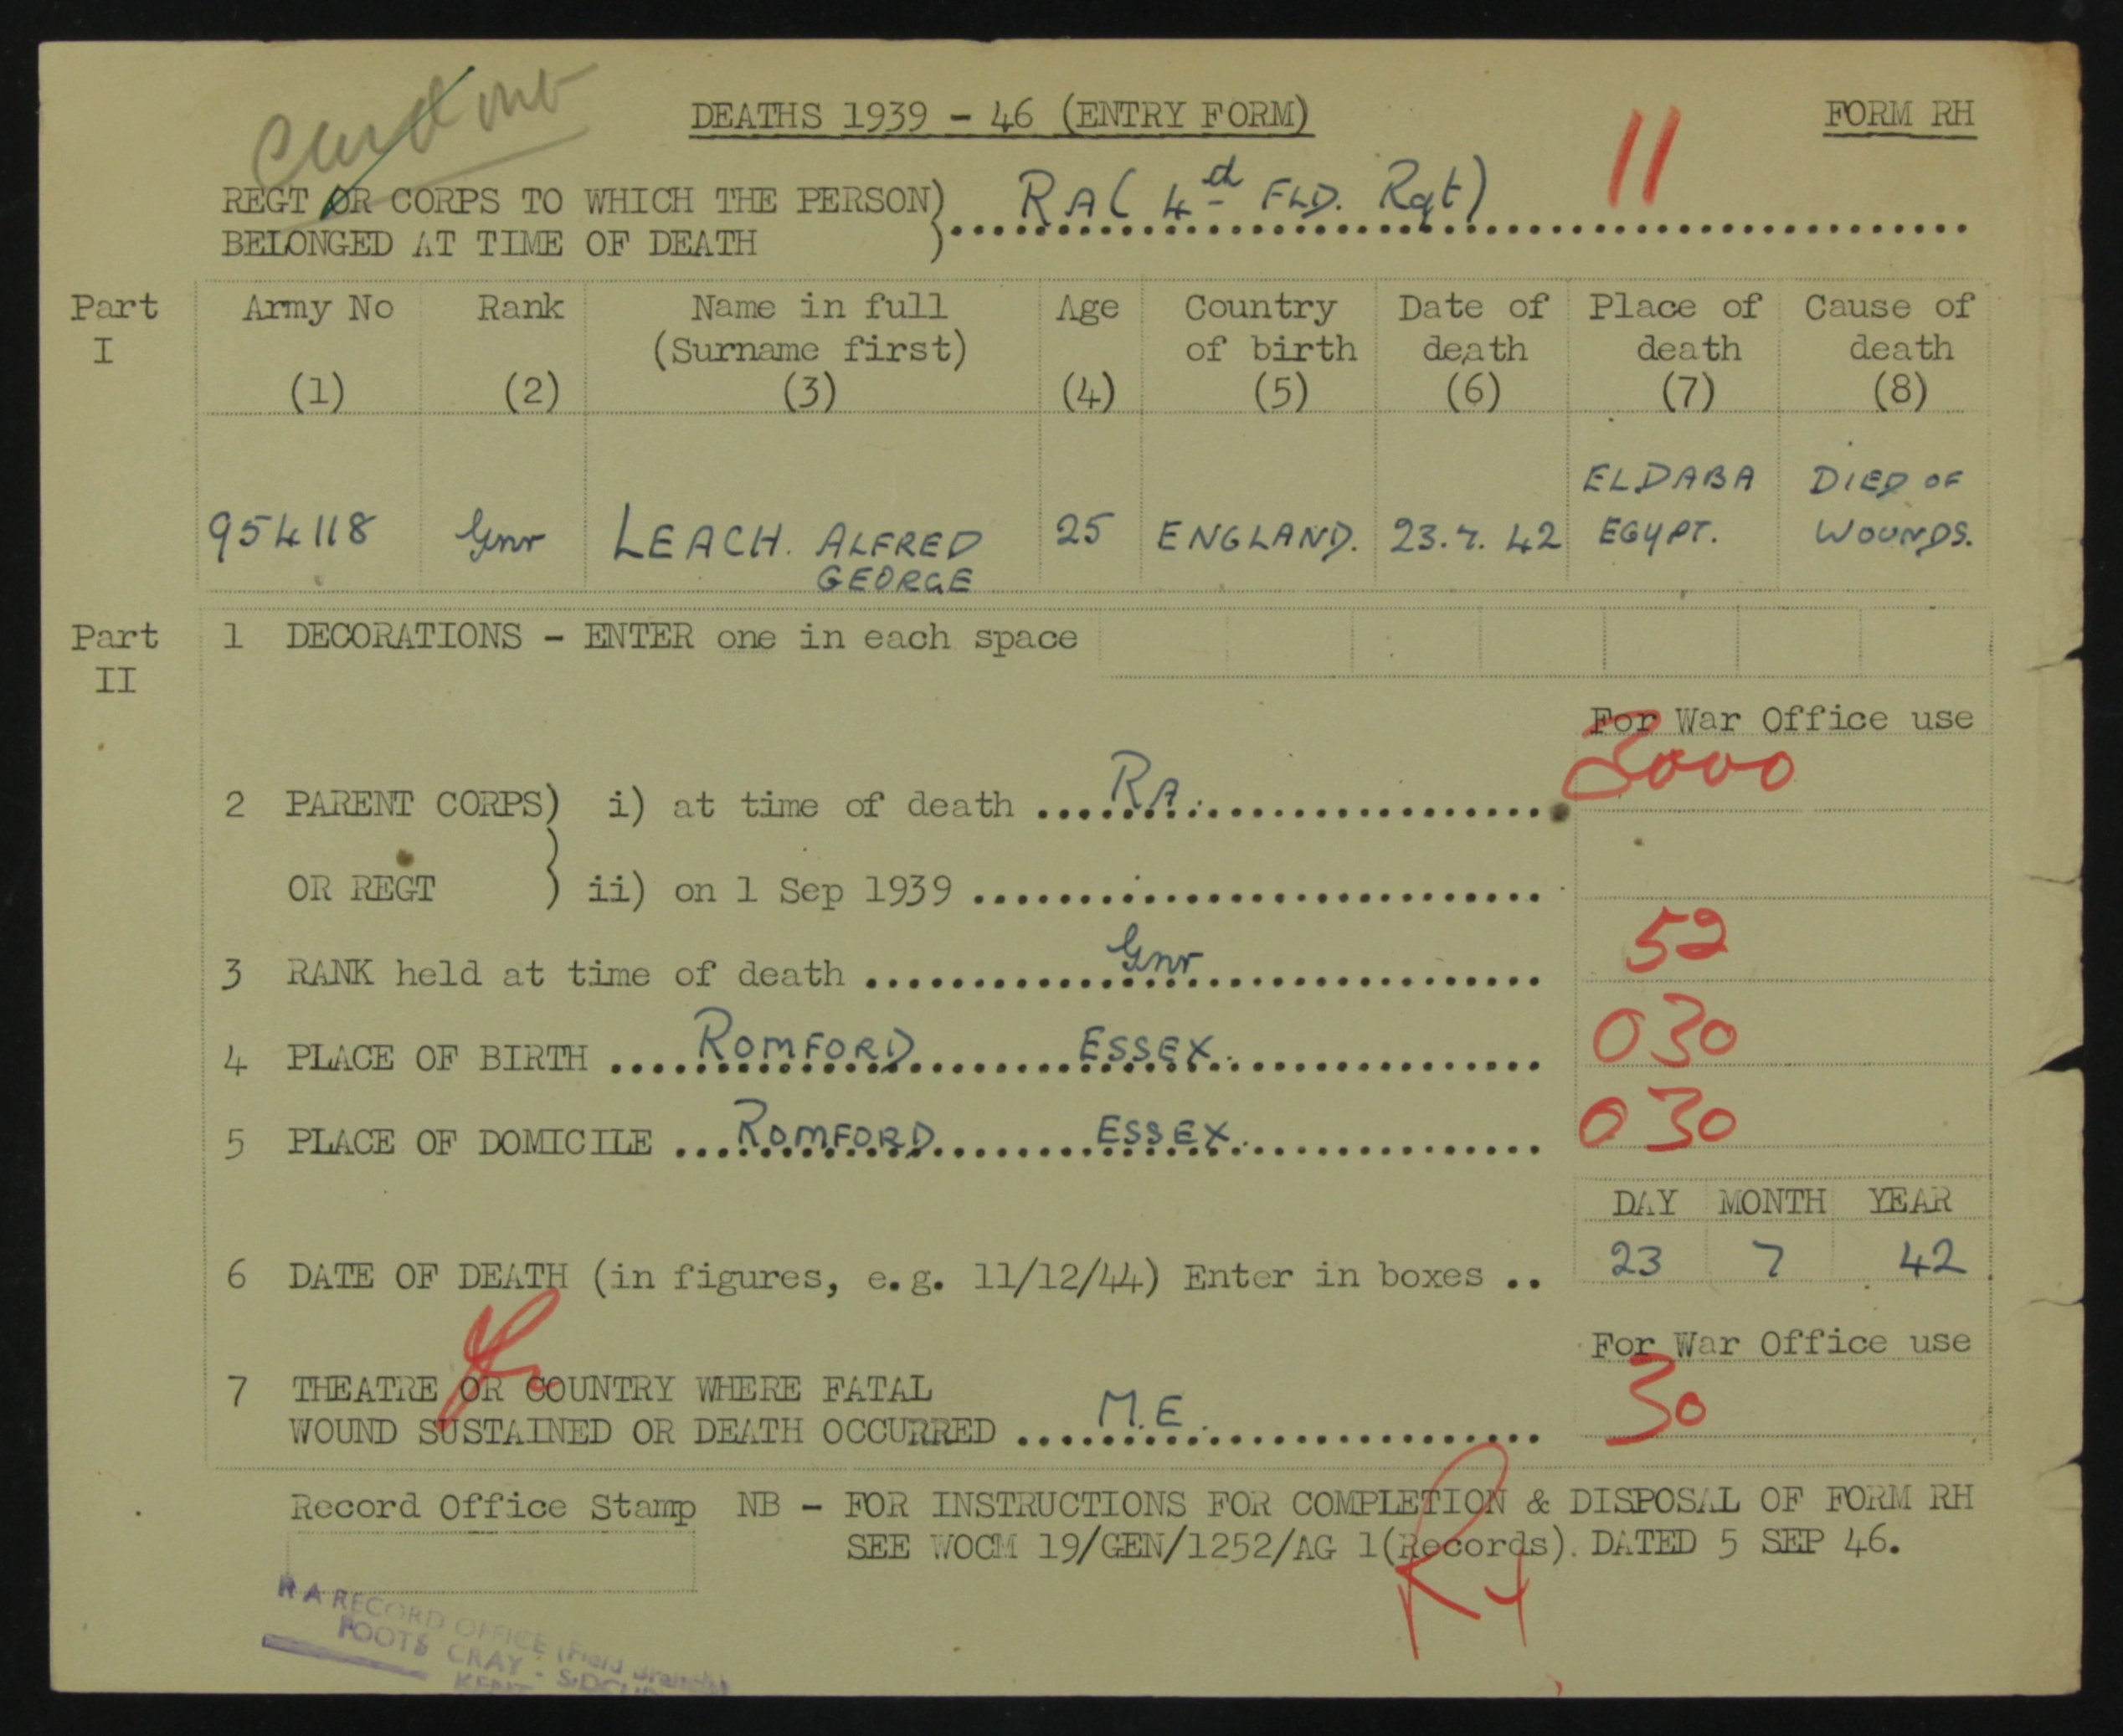 DEATHS 1939 - 46 (ENTRY FORM)
FORM RH
11
REGT OR CORPS TO WHICH THE PERSON)
BELONGED AT TIME OF DEATH )
RA ( 4th FLD. Rgt)
Part I
Army No (1)
Rank (2)
Name in full (Surname first) (3)
Age (4)
Country of birth (5)
Date of death (6)
Place of death (7)
Cause of death (8)
954118
Gnr
LEACH. ALFRED GEORGE
25
ENGLAND.
23.7.42
ELDABA EGYPT.
DIED OF WOUNDS.
Part II
1 DECORATIONS - ENTER one in each space
For War Office use
2 PARENT CORPS) i) at time of death .... RA. 3000
OR REGT ) ii) on 1 Sep 1939 ....
3 RANK held at time of death .... Gnr 52
4 PLACE OF BIRTH .... ROMFORD ESSEX. 030
5 PLACE OF DOMICILE ... ROMFORD ESSEX. 030
DAY MONTH YEAR
6 DATE OF DEATH (in figures, e.g. 11/12/44) Enter in boxes .. 23 7 42
For War Office use
7 THEATRE OR COUNTRY WHERE FATAL
WOUND SUSTAINED OR DEATH OCCURRED .... M.E. 30
Record Office Stamp NB - FOR INSTRUCTIONS FOR COMPLETION & DISPOSAL OF FORM RH
SEE WOCM 19/GEN/1252/AG 1(Records). DATED 5 SEP 46.
R A RECORD OFFICE (Field Branch)
FOOTS CRAY - SIDCUP
KENT